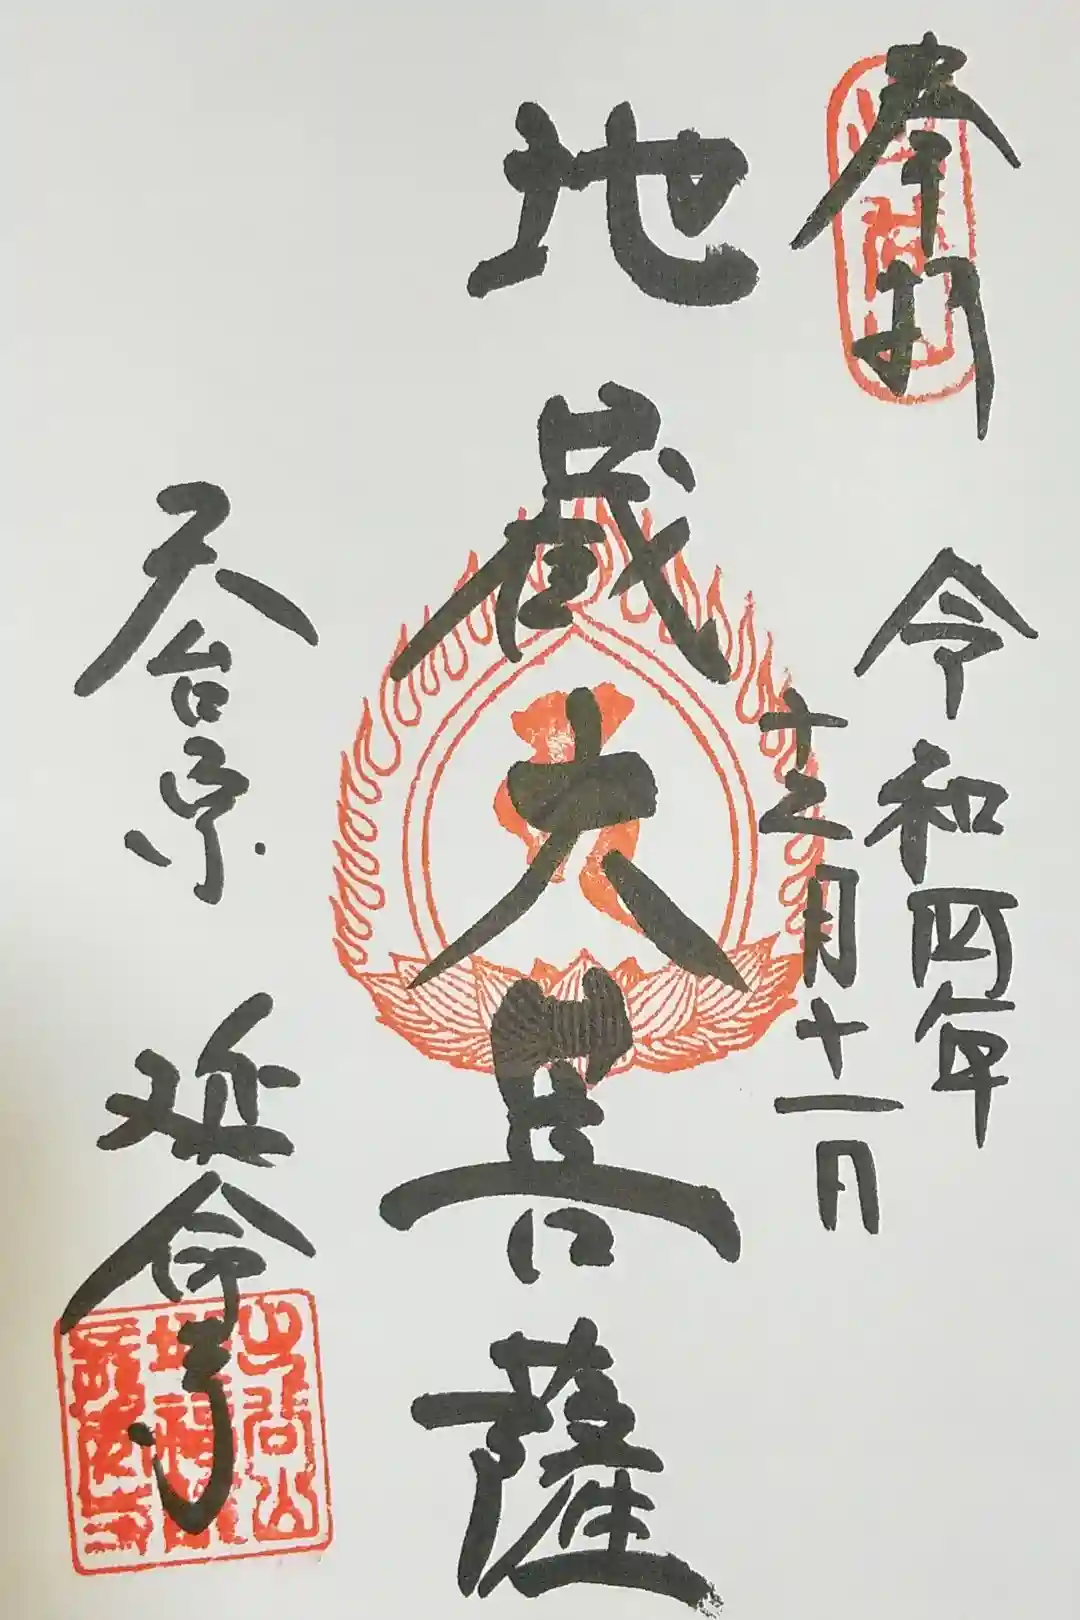 奉拝
令和四年
十二月十一日
地蔵大菩薩
天台宗
延命寺